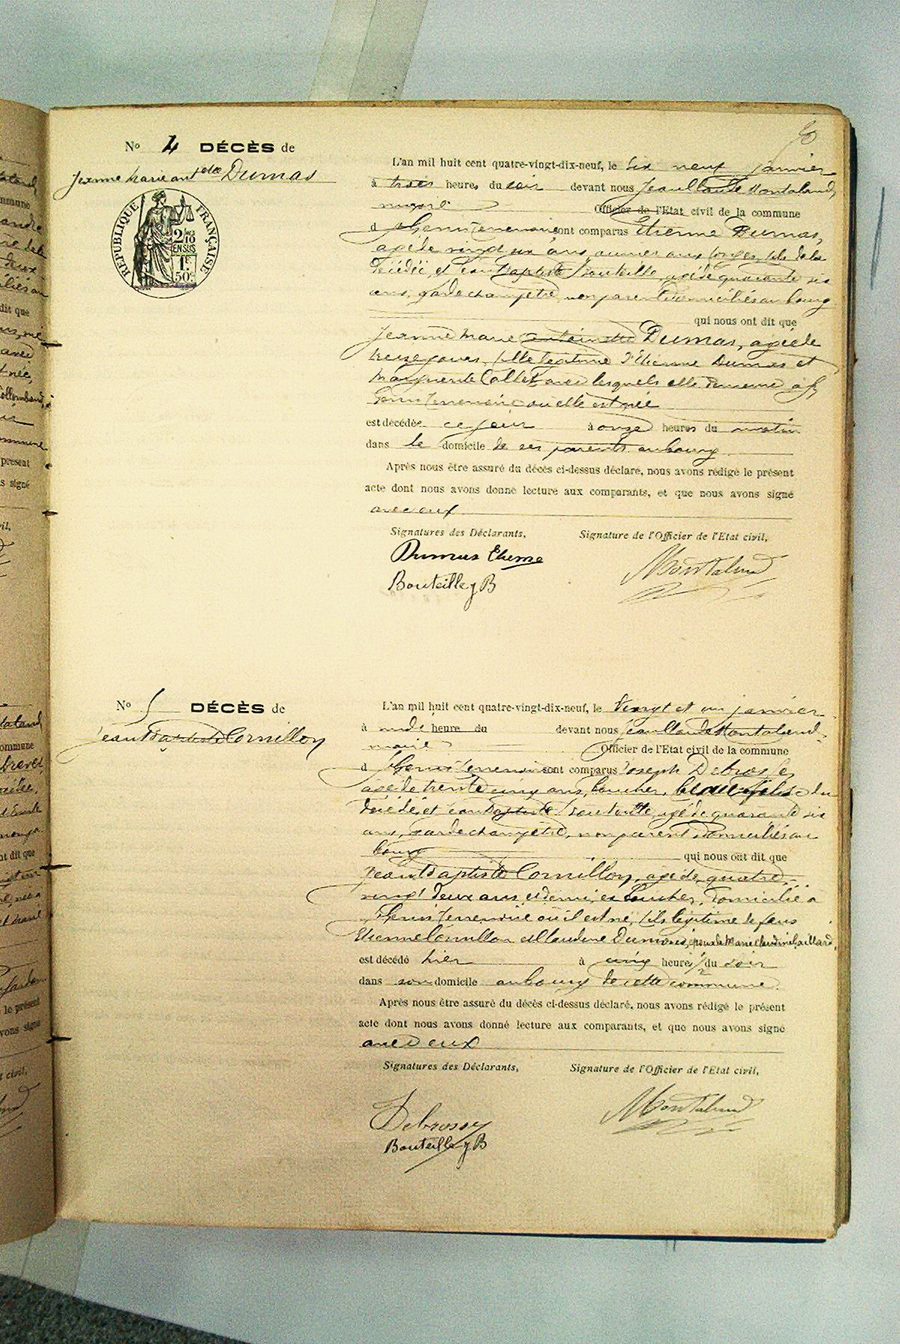 No 4 DÉCÈS de
Jeanne Marie Dumas
RÉPUBLIQUE FRANÇAISE
2/10 EN SUS
1F 50c
L'an mil huit cent quatre-vingt-dix-neuf, le dix neuf janvier
à trois heures du soir devant nous Jean Claude Montaland,
maire Officier de l'Etat civil de la commune
d sont comparus Etienne Dumas,
agé de vingt six ans, ouvrier aux forges, père de la
décédée, et Jean Baptiste Bouteille, agé de quarante six
ans, garde champêtre, non parent domiciliés au bourg
qui nous ont dit que
Jeanne Marie Antoinette Dumas, agée de
treize jours, fille légitime d'Etienne Dumas et
Marguerite Collet avec lesquels elle demeure à St
Genis Terrenoire où elle est née
est décédée ce jour à onze heures du matin
dans le domicile de ses parents au bourg
Après nous être assuré du décès ci-dessus déclaré, nous avons rédigé le présent
acte dont nous avons donné lecture aux comparants, et que nous avons signé
avec eux
Signatures des Déclarants, Signature de l'Officier de l'Etat civil,
Dumas Etienne Montaland
Bouteille JB
No 5 DÉCÈS de
Jean Baptiste Cornillon
L'an mil huit cent quatre-vingt-dix-neuf, le vingt et un janvier
à midi heure du devant nous Jean Claude Montaland
maire Officier de l'Etat civil de la commune
d St Genis Terrenoire sont comparus Joseph Debrosse,
agé de trente cinq ans, boucher, du
décédé, et Jean Baptiste Bouteille, agé de quarante six
ans, garde champêtre, non parent domiciliés au
bourg qui nous ont dit que
Jean Baptiste Cornillon, agé de quatre-
vingt deux ans et demi, ex boucher, domicilié à
St Genis Terrenoire où il est né, fils légitime de feus
Etienne Cornillon et Claudine Dumas, époux de Marie Claudine Gaillard,
est décédé hier à cinq heures 1/2 du soir
dans son domicile au bourg de cette commune.
Après nous être assuré du décès ci-dessus déclaré, nous avons rédigé le présent
acte dont nous avons donné lecture aux comparants, et que nous avons signé
avec eux
Signatures des Déclarants, Signature de l'Officier de l'Etat civil,
Debrosse Montaland
Bouteille JB